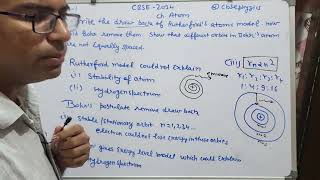 CBSE-2024
@cbsephysics
ch Atom
Write the draw back of Rutherford's atomic model. How
did Bohr remove them. Show that different orbit in Bohr's atom
are not equally spaced.
Rutherford model could not Explain
(i) Stability of atom
(ii) Hydrogen spectrum
Bohr's postulate remove draw back
(i) Stable/stationary orbit n=1,2,3,4...
electron could not lose energy in these orbits
gives energy level model which could Explain
Hydrogen spectrum
(iii) rn ∝ n²
r1 : r2 : r3 : r4
1 : 4 : 9 : 16